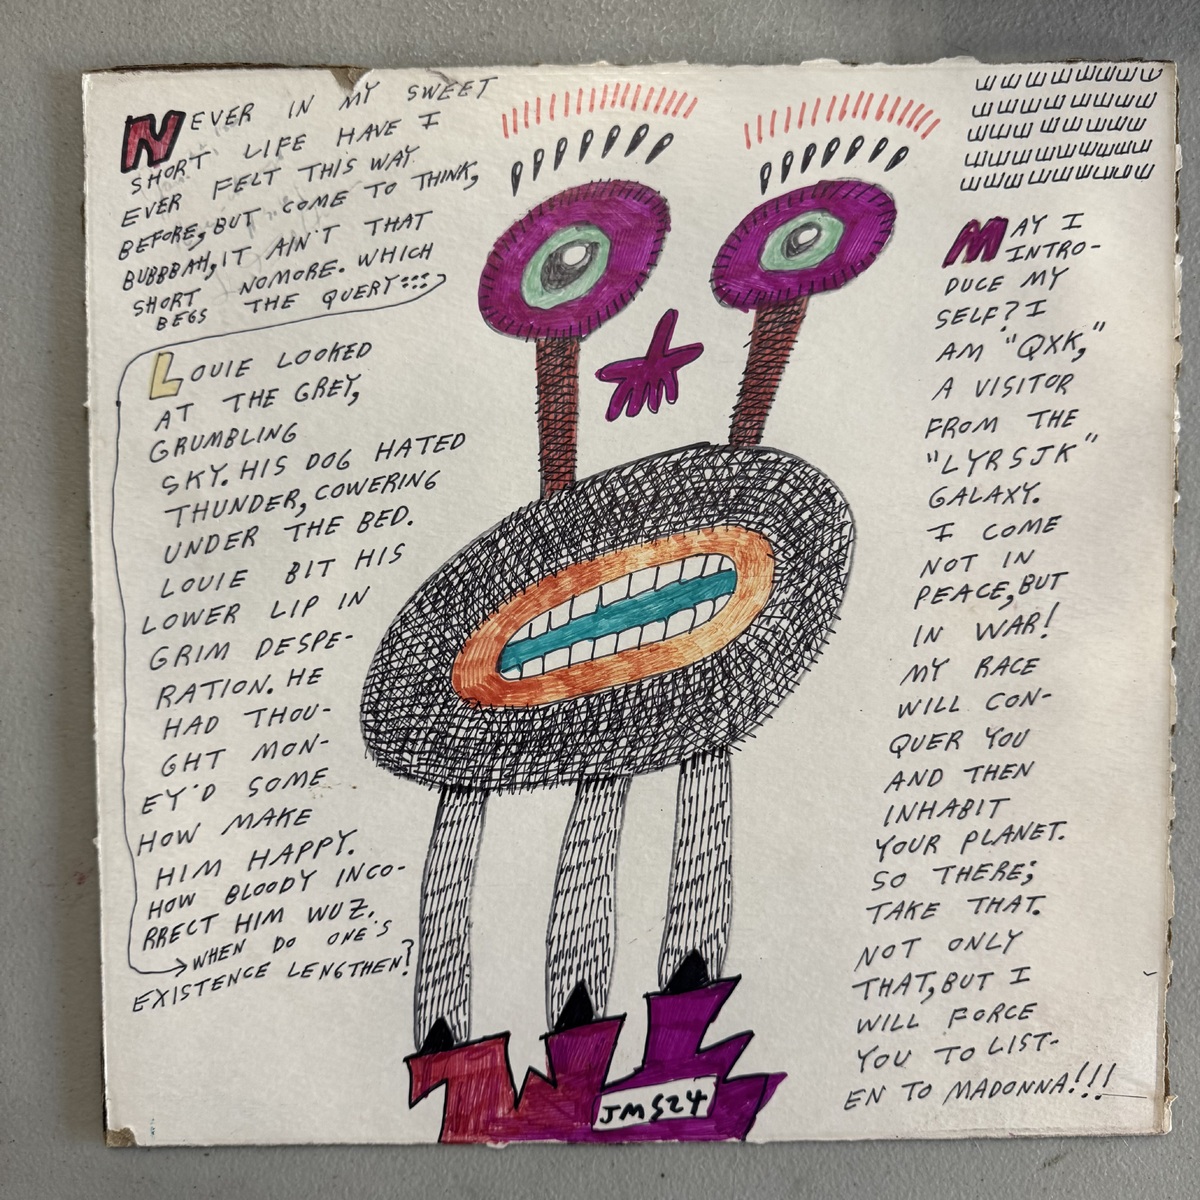 NEVER IN MY SWEET
SHORT LIFE HAVE I
EVER FELT THIS WAY
BEFORE, BUT COME TO THINK,
BUBBBAH, IT AIN'T THAT
SHORT NOMORE. WHICH
BEGS THE QUERY:::
LOUIE LOOKED
AT THE GREY,
GRUMBLING
SKY. HIS DOG HATED
THUNDER, COWERING
UNDER THE BED.
LOUIE BIT HIS
LOWER LIP IN
GRIM DESPE-
RATION. HE
HAD THOU-
GHT MON-
EY'D SOME
HOW MAKE
HIM HAPPY.
HOW BLOODY INCO-
RRECT HIM WUZ.
→WHEN DO ONE'S
EXISTENCE LENGTHEN?
MAY I
INTRO-
DUCE MY
SELF? I
AM "QXK,"
A VISITOR
FROM THE
"LYRSJK"
GALAXY.
I COME
NOT IN
PEACE, BUT
IN WAR!
MY RACE
WILL CON-
QUER YOU
AND THEN
INHABIT
YOUR PLANET.
SO THERE;
TAKE THAT.
NOT ONLY
THAT, BUT I
WILL FORCE
YOU TO LIST-
EN TO MADONNA!!!
JMS24